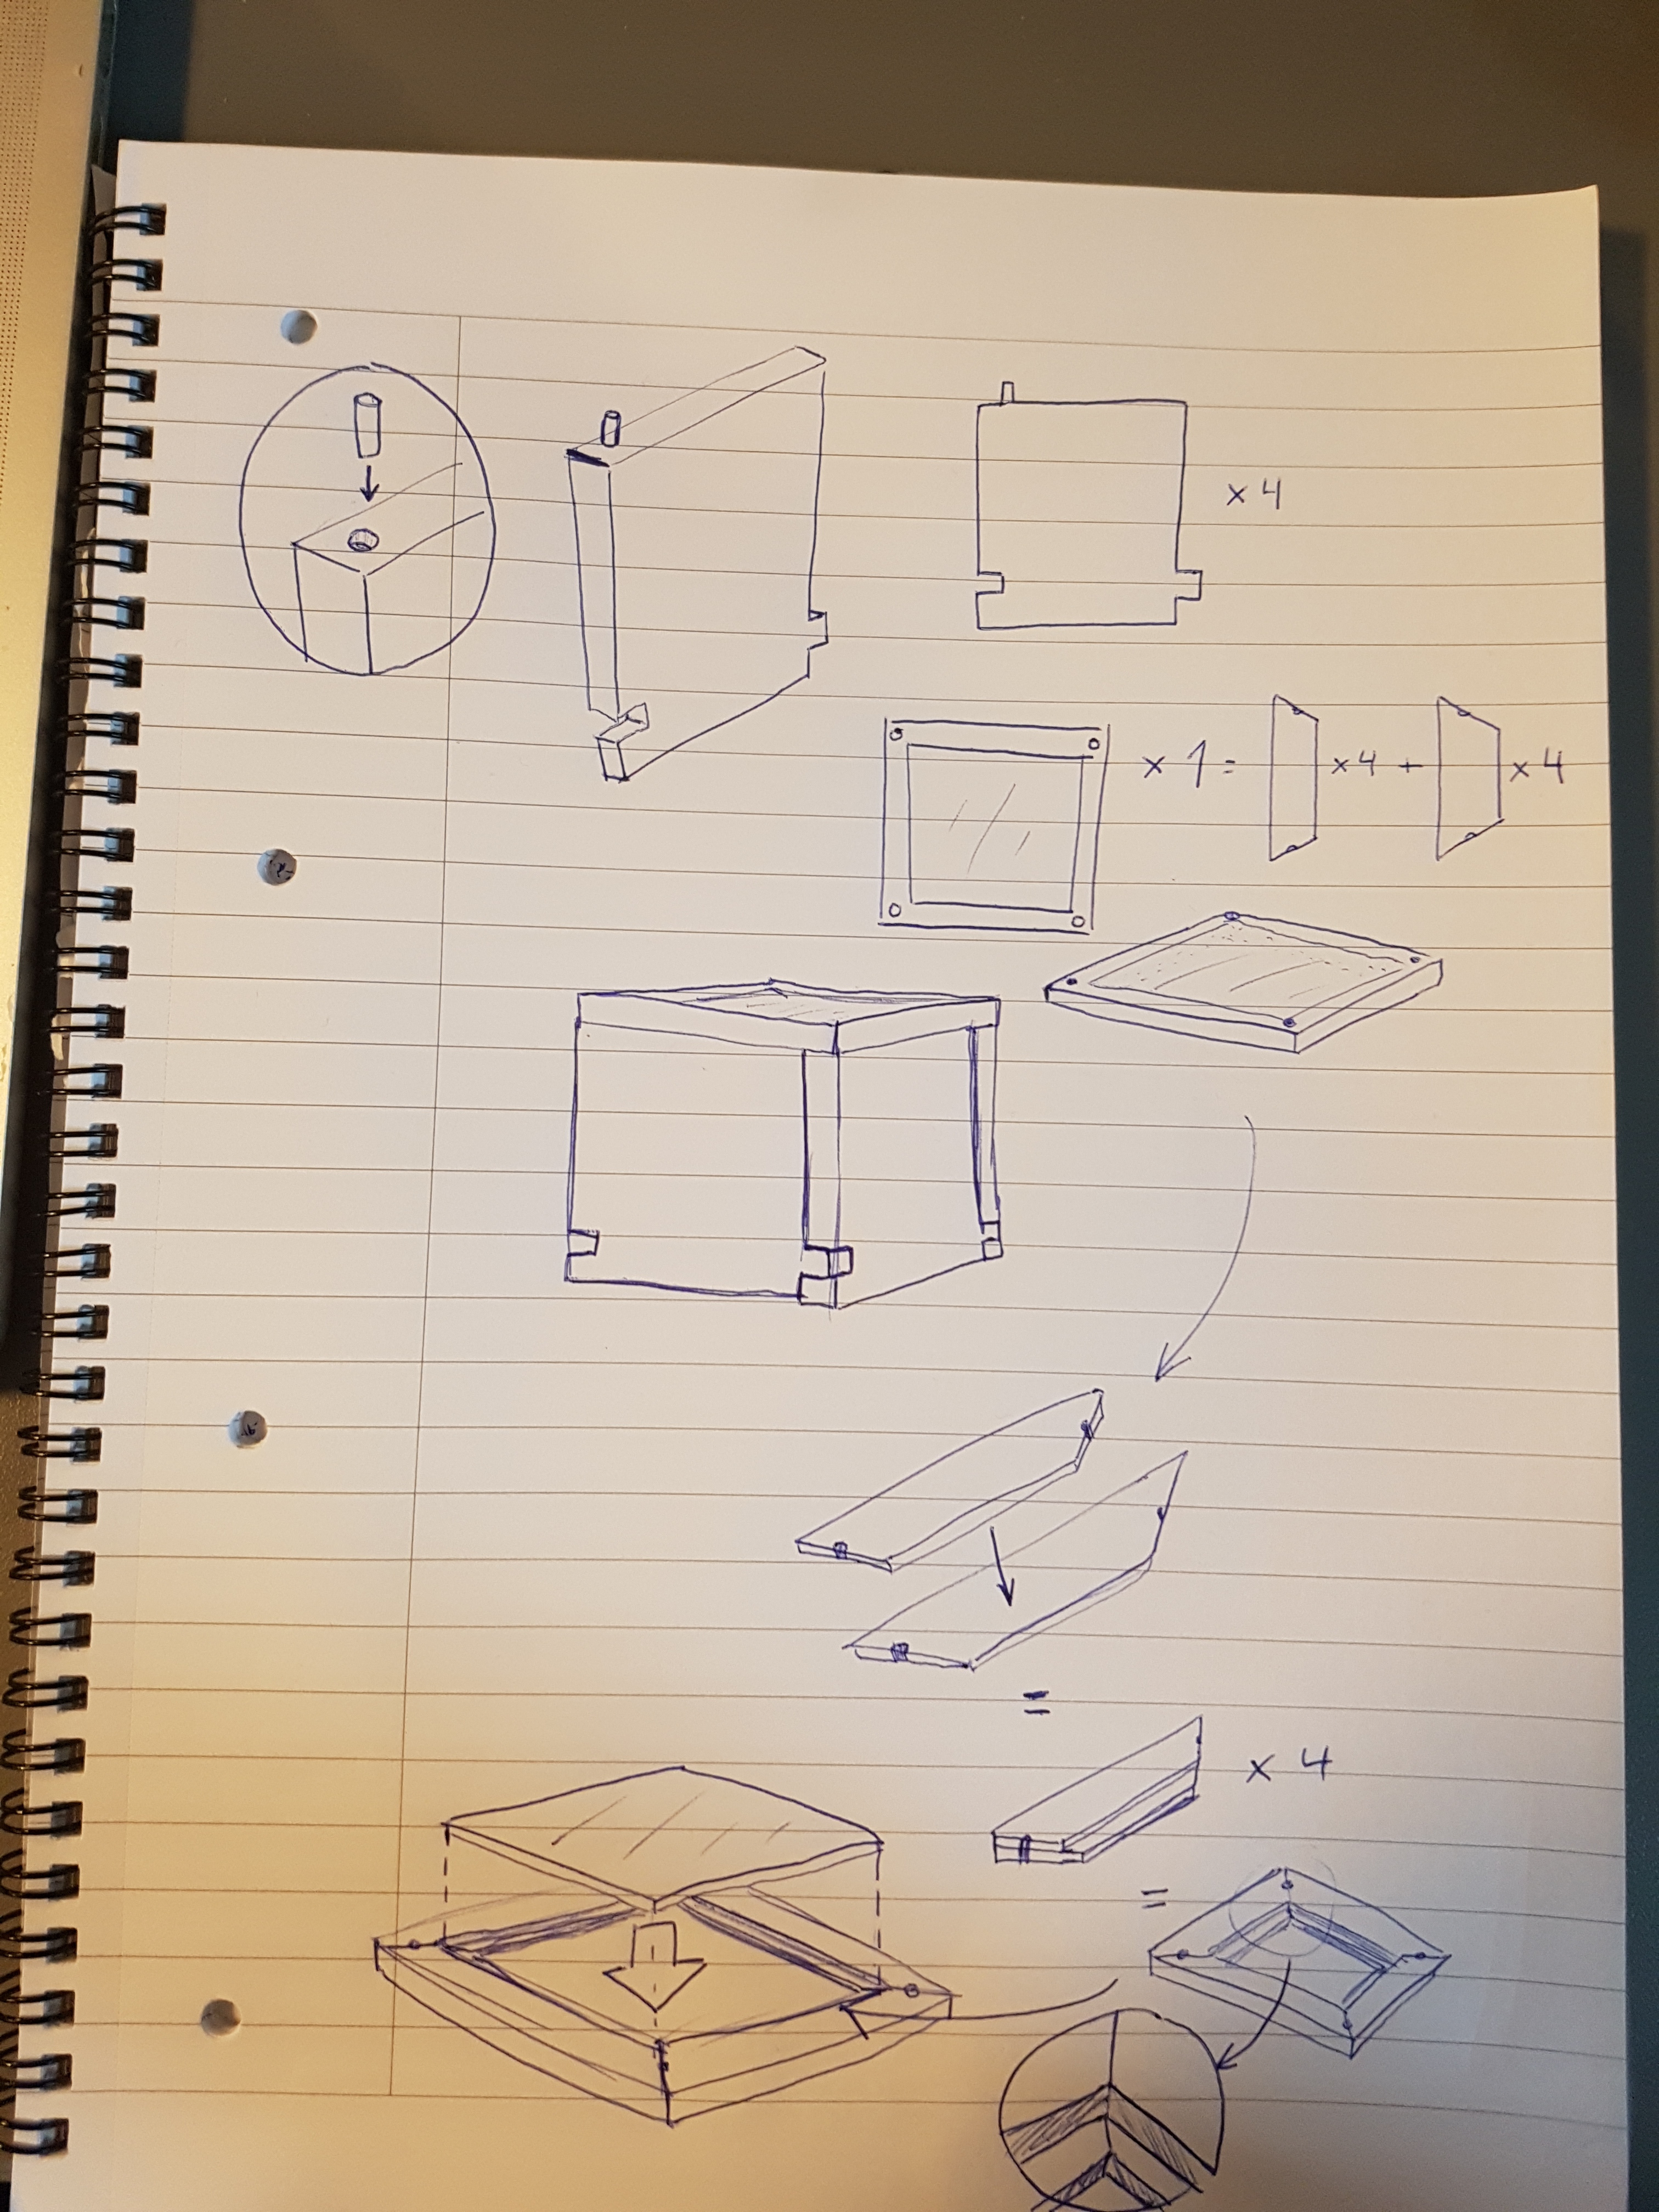 x 4
x 1 = x 4 + x 4
=
x 4
=